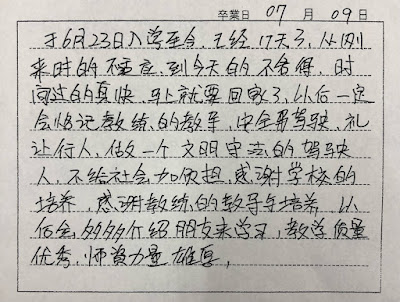 卒業日 07 月 09 日
于6月23日入学至今,已经17天了,从刚
来时的不适应,到今天的不舍得,时
间过的真快,马上就要回家了,以后一定
会牢记教练的教导,安全驾驶,礼
让行人,做一个文明守法的驾驶
人,不给社会加负担,感谢学校的
培养,感谢教练的教导与培养,以
后会多多介绍朋友来学习,教学质量
优秀,师资力量雄厚,